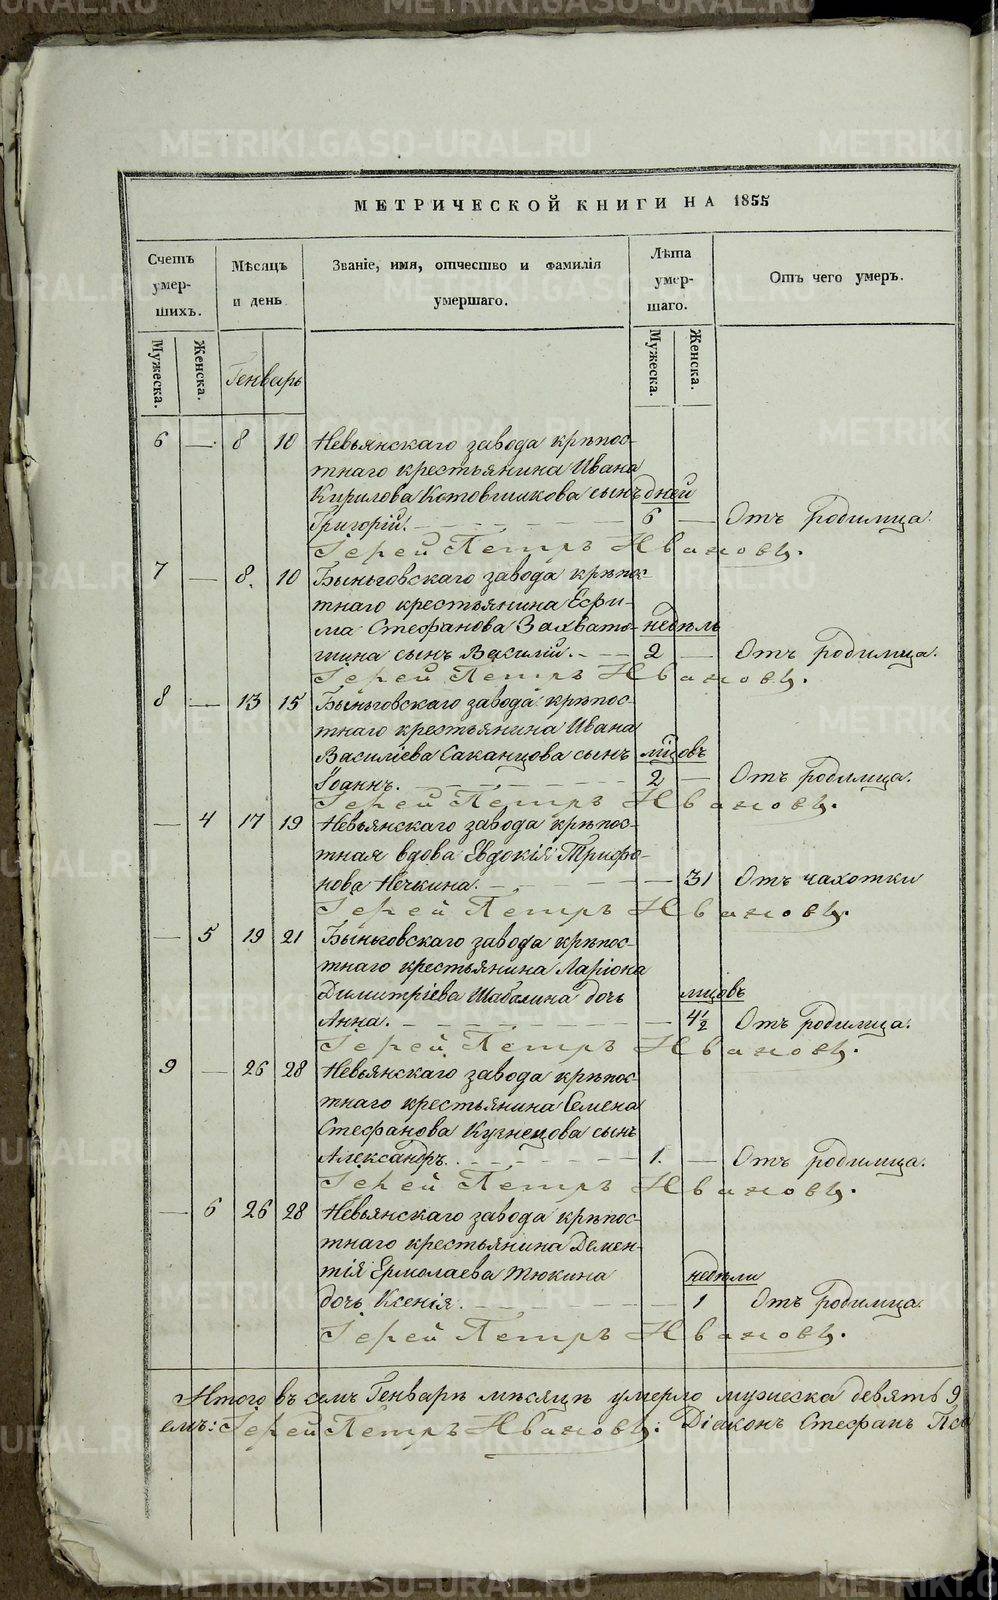 METRIKI.GASO-URAL.RU
МЕТРИЧЕСКОЙ КНИГИ НА 1855
Счетъ умер-шихъ.
Мѣсяцъ и день
Званіе, имя, отчество и фамилія умершаго.
Лѣта умер-шаго.
Отъ чего умеръ.
Мужеска.
Женска.
Генварь
Мужеска.
Женска.
6 — 8 10 Невьянскаго завода крѣпос-
тнаго крестьянина Ивана
Кирилова Котовщикова сынъ дней
Григорій. 6 — Отъ родимца.
Іерей Петръ Ивановъ.
7 — 8. 10 Быньговскаго завода крѣпос-
тнаго крестьянина Ефи-
ма Стефанова Захвато- недѣль
шина сынъ Василій. 2 — Отъ родимца.
Іерей Петръ Ивановъ.
8 — 13 15 Быньговскаго завода крѣпос-
тнаго крестьянина Ивана
Василіева Саканцова сынъ мцовъ
Іоаннъ. 2 — Отъ родимца.
Іерей Петръ Ивановъ.
— 4 17 19 Невьянскаго завода крѣпос-
тная вдова Евдокія Трифо-
нова Нечкина. — 31 Отъ чахотки
Іерей Петръ Ивановъ.
— 5 19 21 Быньговскаго завода крѣпос-
тнаго крестьянина Ларіона
Димитріева Шабалина дочь мцовъ
Анна. — 4½ Отъ родимца.
Іерей Петръ Ивановъ.
9 — 26 28 Невьянскаго завода крѣпос-
тнаго крестьянина Семена
Стефанова Кузнецова сынъ
Александръ. 1. — Отъ родимца.
Іерей Петръ Ивановъ.
— 6 26 28 Невьянскаго завода крѣпос-
тнаго крестьянина Демен-
тія Ермолаева Тюкина недѣли
дочь Ксенія. — 1 Отъ родимца.
Іерей Петръ Ивановъ.
Итого въ семъ Генварѣ мѣсяцѣ умерло мужеска девять 9
емъ: Іерей Петръ Ивановъ. Діаконъ Стефанъ